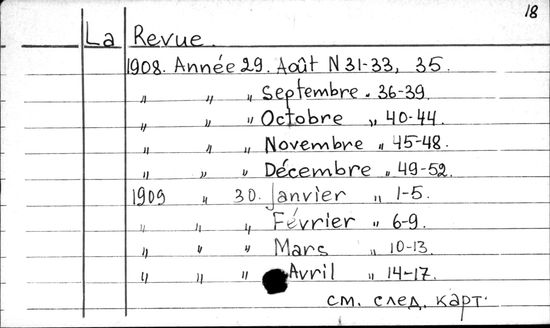 18
La Revue.
1908. Année 29. Août N 31-33, 35.
„ „ „ Septembre „ 36-39.
„ „ „ Octobre „ 40-44.
„ „ „ Novembre „ 45-48.
„ „ „ Décembre „ 49-52.
1909 „ 30. Janvier „ 1-5.
„ „ „ Février „ 6-9.
„ „ „ Mars „ 10-13.
„ „ „ Avril „ 14-17.
см. след. карт.